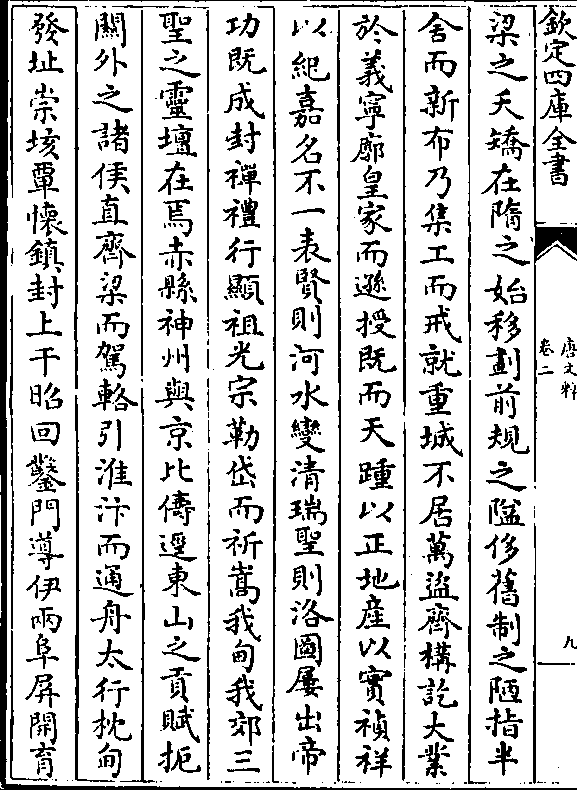 欽定四庫全書
唐文粹
卷二
九
梁之夭矯在隋之始移劃前規之隘侈舊制之陋指半
舍而新布乃集工而戒就重城不居萬盗齊構訖大業
於義寧廓皇家而遜授既而天踵以正地産以實禎祥
以紀嘉名不一表賢則河水變清瑞聖則洛圖屢出帝
功既成封禪禮行顯祖光宗勒岱而祈嵩我甸我郊三
聖之靈壇在焉赤縣神州與京比儔邇東山之貢賦扼
關外之諸侯直齊梁而駕輅引淮汴而通舟太行枕甸
發址崇垓覃懷鎮封上干昭回鑿門導伊兩阜屏開育